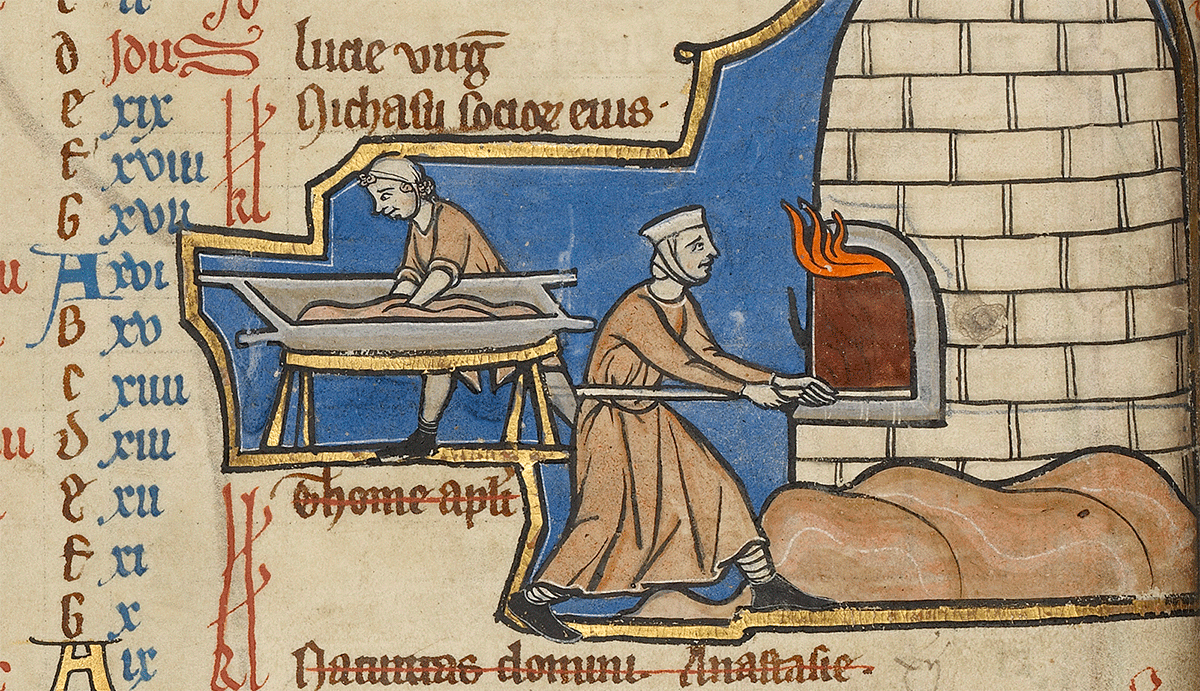 d Idus lucie virg̅
e xix kl Nichasii socioꝝ eius·
f xviii
G xvii kl
A xvi
B xv
c xiiii
d xiii
e xii kl Thome apl̅i
f xi
G x
A ix kl Natiuitas domini· Anastasie·